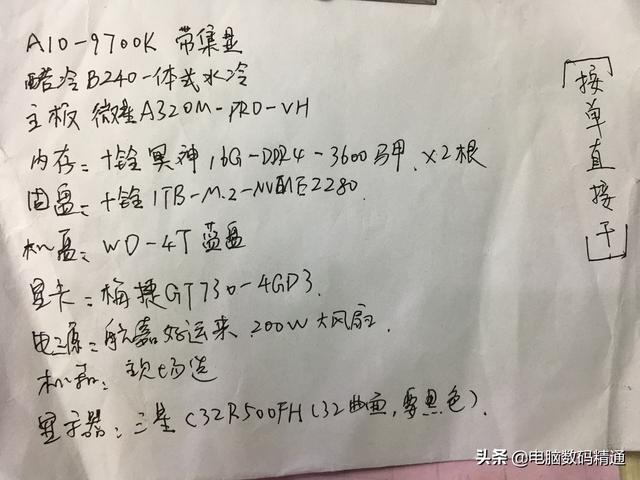 A10-9700K 带集显
酷冷B240一体式水冷
主板 微星A320M-PRO-VH
内存:十铨冥神16G-DDR4-3600马甲.×2根
固盘:十铨1TB-M.2-NVME2280.
机盘:WD-4T 蓝盘
显卡:梅捷GT730-4GD3.
电源:航嘉好运来.200W大风扇.
机箱:
显示器:三星C32R500FH(32曲面,要黑色).
接单直接干
头条@电脑数码精通